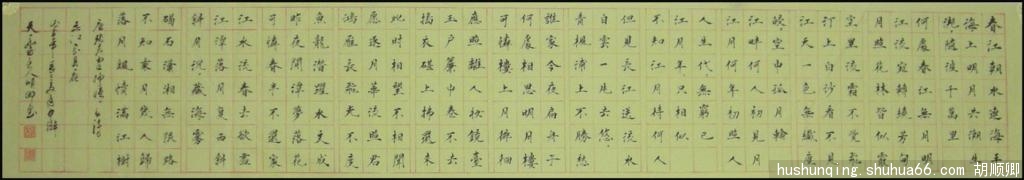 春江潮水連海平
海上明月共潮生
灔灔隨波千萬里
何處春江無月明
江流宛轉繞芳甸
月照花林皆似霰
空里流霜不覺飛
汀上白沙看不見
江天一色無纖塵
皎皎空中孤月輪
江畔何人初見月
江月何年初照人
人生代代無窮已
江月年年只相似
不知江月待何人
但見長江送流水
白雲一片去悠悠
青楓浦上不勝愁
誰家今夜扁舟子
何處相思明月樓
可憐樓上月徘徊
應照離人妝鏡臺
玉戶簾中卷不去
搗衣砧上拂還來
此時相望不相聞
願逐月華流照君
鴻雁長飛光不度
魚龍潛躍水文成
昨夜閑潭夢落花
可憐春半不還家
江水流春去欲盡
江潭落月復西斜
斜月沉沉藏海霧
碣石瀟湘無限路
不知乘月幾人歸
落月搖情滿江樹
唐張若虛詩
hushunqing.shuhua66.com 胡顺卿